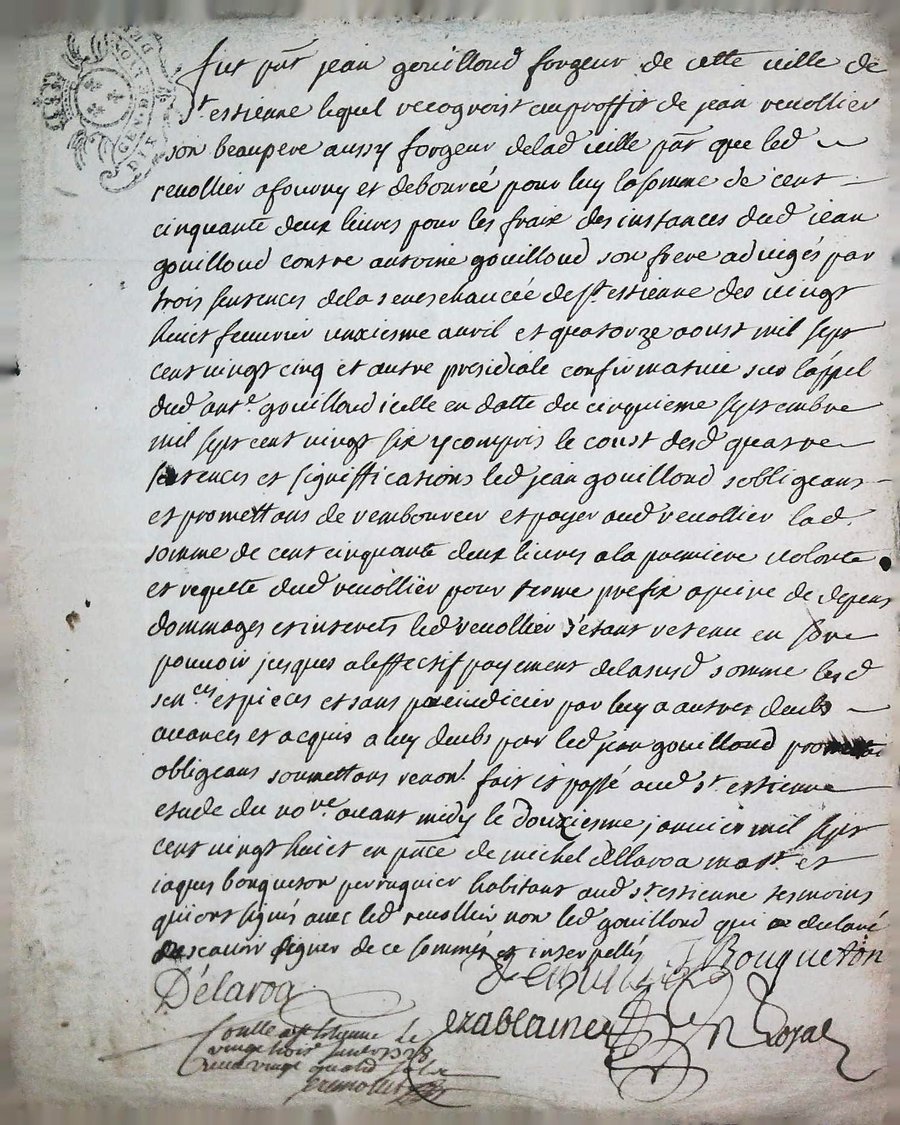 GEN DE LION
DIX
fut pnt jean gouilloud forgeur de cette ville de
st estienne lequel recognoist au proffit de jean reuollier
son beaupere aussy forgeur delad ville pnt que led
reuollier a fourny et debourcé pour luy la somme de cent
cinquante deux liures pour les fraix des instances dud jean
gouilloud contre antoine gouilloud son frere adiugés par
trois sentences dela seneschaucée de st estienne des vingt
huict feurier unxiesme auril et quatorze aoust mil sept
cent vingt cinq et autre presidiale confirmatiue sur l'appel
dud ante gouilloud icelle en datte du cinquieme septembre
mil sept cent vingt six y compris le coust desd quatre
sentences et significations led jean gouilloud s'obligeans
et promettans de rembourcer et payer aud reuollier lad.
somme de cent cinquante deux liures a la premiere volonté
et requete dud reuollier pour terme prefix a peine de depens
dommages et interets led reuollier s'étant retenu en son
pouuoir jusques a l'effectif payement dela susd somme lesd
sences et pieces et sans preiudicier par luy a autres deubs
auances et acquis a luy deubs par led jean gouilloud
obligeans soumettans renont. fait et passé aud st estienne
etude du nore auant midy le douxiesme januier mil sept
cent vingt huict en pnce de michel dellaroa mart et
jaques bouqueton perruquier habitant aud st estienne tesmoins
qui ont signés auec led reuollier non led gouilloud qui a declaré
ne scauoir signer de ce sommés et interpellés
J Bouqueton
Délaroa
ezablaine
Royal
Conlle a st estienne le
vingt trois januier 1728